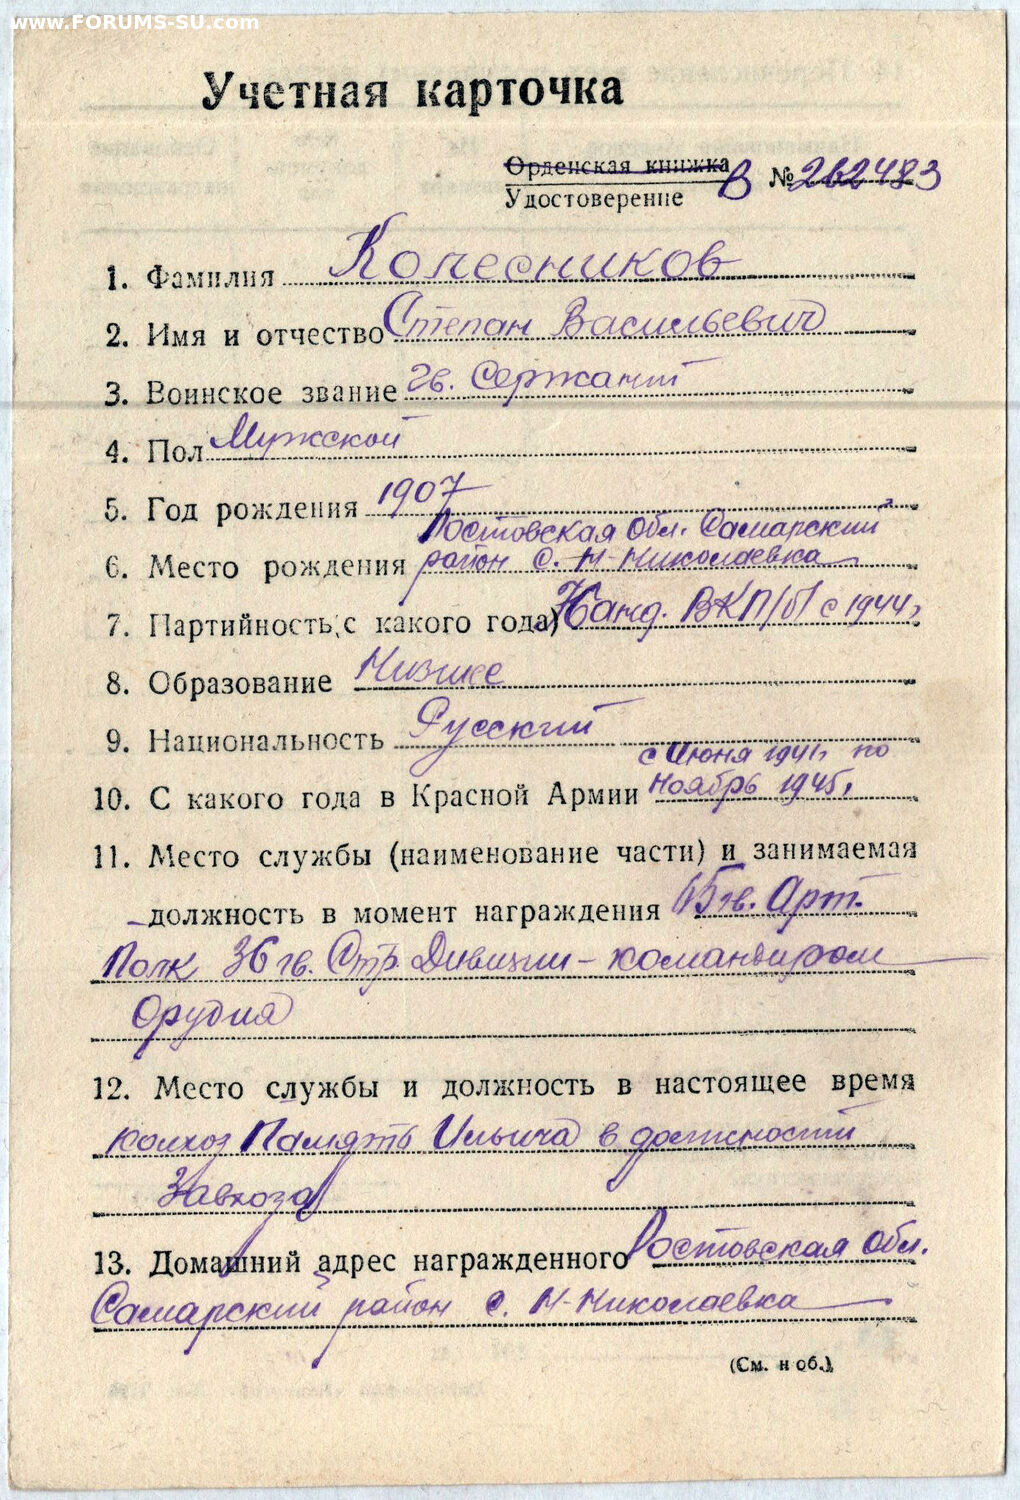 www.FORUMS-SU.com
Учетная карточка
Орденская книжка
Удостоверение В № 262483
1. Фамилия Колесников
2. Имя и отчество Степан Васильевич
3. Воинское звание гв. Сержант
4. Пол Мужской
5. Год рождения 1907
Ростовская обл. Самарский
6. Место рождения район с. Н-Николаевка
7. Партийность (с какого года) Канд. ВКП/б/ с 1944г
8. Образование Низшее
9. Национальность Русский
с Июня 1941г по
10. С какого года в Красной Армии Ноябрь 1945г
11. Место службы (наименование части) и занимаемая
должность в момент награждения 65 гв. Арт.
Полк 36 гв. Стр. Дивизии - командиром
Орудия
12. Место службы и должность в настоящее время
колхоз Память Ильича в должности
Завхоза
13. Домашний адрес награжденного Ростовская обл.
Самарский район с. Н-Николаевка
(См. н об.)